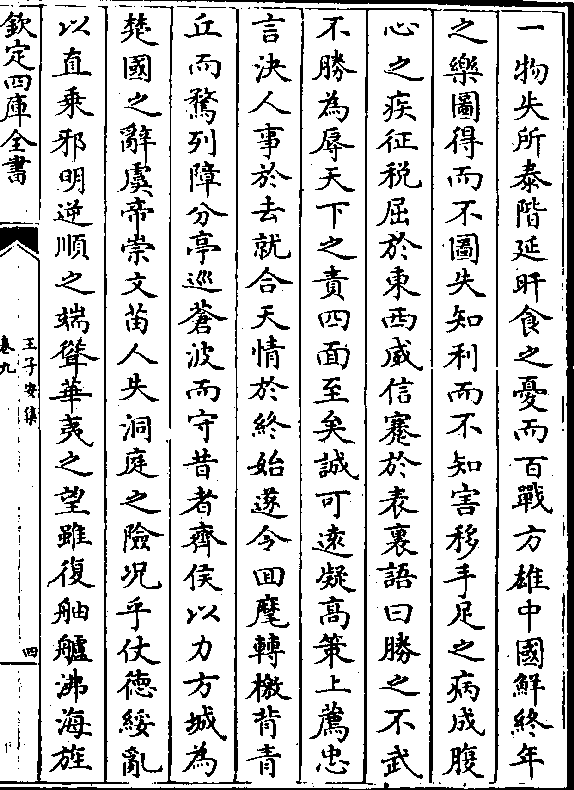 一物失所泰階延旰食之憂而百戰方雄中國鮮終年
之樂圖得而不圖失知利而不知害移手足之病成腹
心之疾征税屈於東西威信蹇於表裏語曰勝之不武
不勝為辱天下之責四面至矣誠可遠凝高策上薦忠
言決人事於去就合天情於終始遂令回麾轉檄背青
丘而騖列障分亭巡蒼波而守昔者齊侯以力方城為
楚國之辭虞帝崇文苗人失洞庭之險况乎仗徳綏亂
以直乗邪明逆順之端聳華夷之望雖復舳艫沸海旌
欽定四庫全書
王子安集
卷九
四